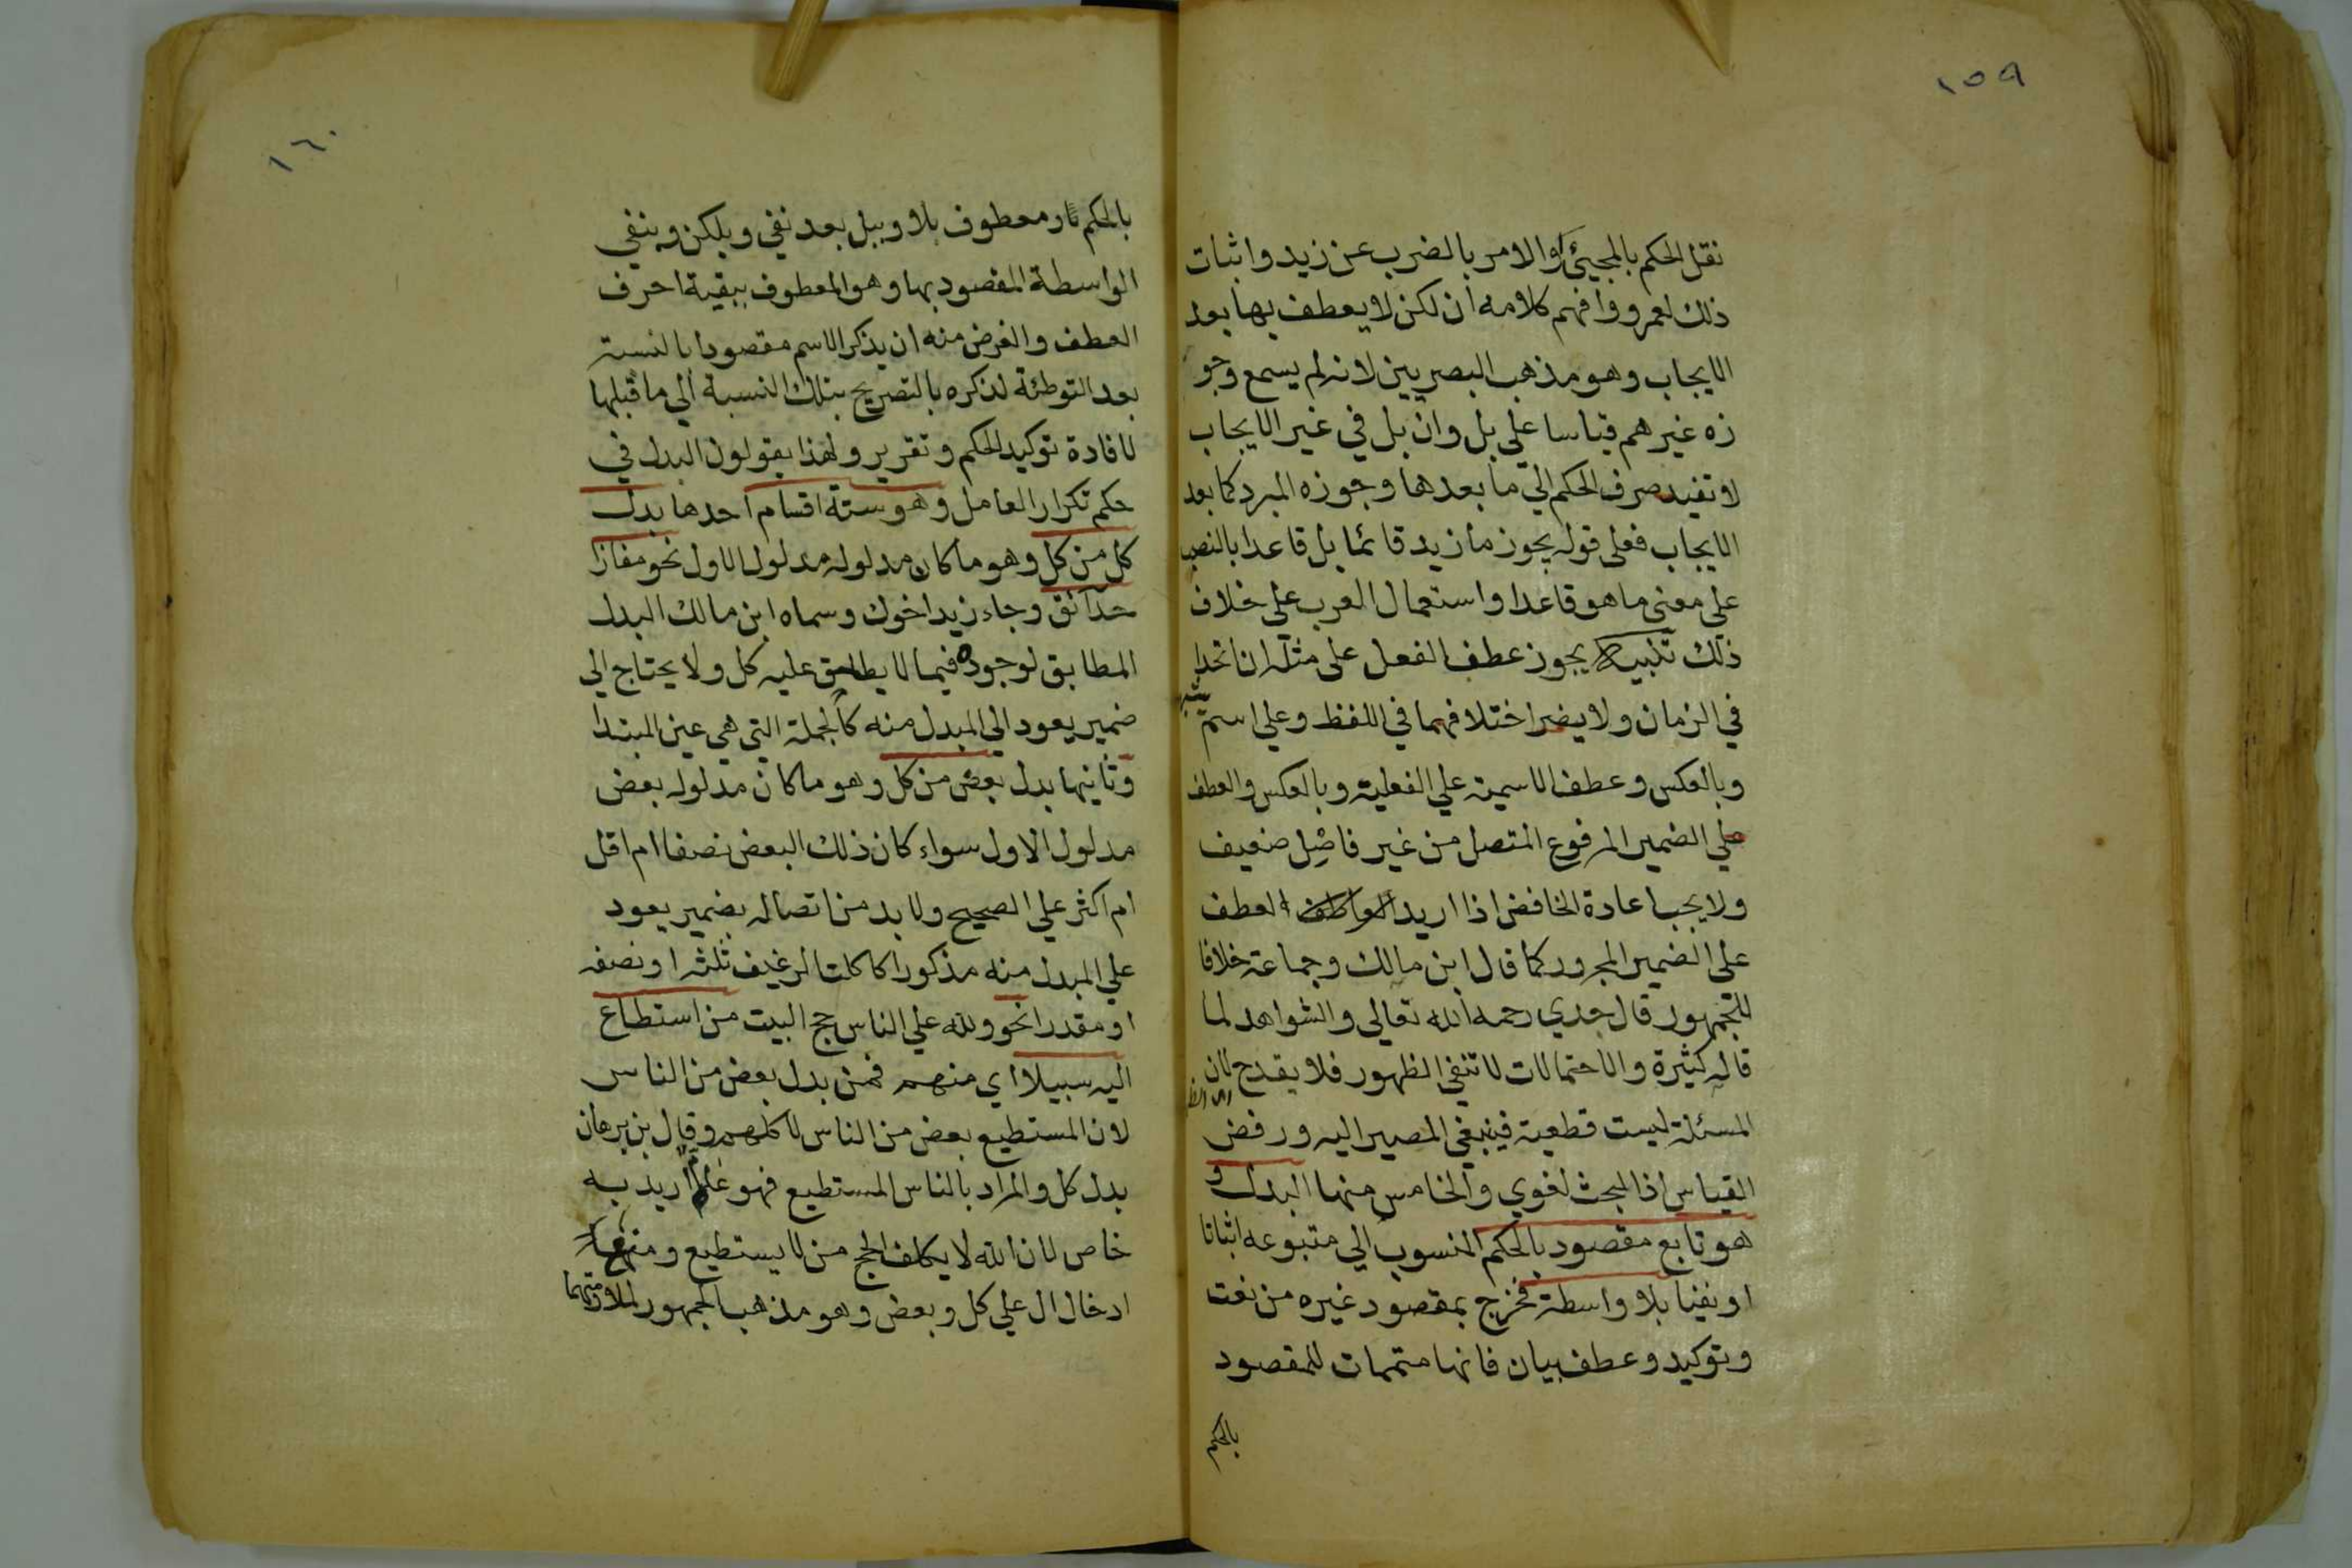 ١٥٩
نقل الحكم بالمجيئ والامر بالضرب عن زيد واثبات
ذلك لعمرو وافهم كلامه ان لكن لا يعطف بها بعد
الايجاب وهو مذهب البصريين لانه لم يسمع وجو
زه غيرهم قياسا علي بل وان بل في غير الايجاب
لا تفيد صرف الحكم الي ما بعدها وجوزه المبرد كما بعد
الايجاب فعلى قوله يجوز ما زيد قائما بل قاعدا بالنصب
على معنى ما هو قاعدا واستعمال العرب على خلاف
ذلك تنبيه يجوز عطف الفعل على مثله ان اتحدا
في الزمان ولا يضر اختلافهما في اللفظ وعلي اسم يشبهه
وبالعكس وعطف الاسمية علي الفعلية وبالعكس والعطف
علي الضمير المرفوع المتصل من غير فاصل ضعيف
ولا يجب اعادة الخافض اذا اريد العطف
علي الضمير المجرور كما قال ابن مالك وجماعة خلافا
للجمهور قال جدي رحمه الله تعالي والشواهد لما
قاله كثيرة والاحتمالات لا تنفي الظهور فلا يقدح لان
المسئلة ليست قطعية فينبغي المصير اليه ورفض
القياس اذ البحث لغوي والخامس منها البدل و
هو تابع مقصود بالحكم المنسوب الي متبوعه اثباتا
او نفيا بلا واسطة فخرج بمقصود غيره من نعت
وتوكيد وعطف بيان فانها متممات للمقصود
بالحكم
١٦٠
بالحكم معطوف بلا وببل بعد نفي وبلكن وبنفي
الواسطة المقصود بها وهو المعطوف ببقية احرف
العطف والغرض منه ان يذكر الاسم مقصودا بالنسبة
بعد التوطئة لذكره بالتصريح بتلك النسبة الي ما قبلها
لافادة توكيد الحكم وتقرير ولهذا يقولون البدل في
حكم تكرار العامل وهو ستة اقسام احدها بدل
كل من كل وهو ما كان مدلوله مدلول الاول نحو مفازا
حدائق وجاء زيد اخوك وسماه ابن مالك البدل
المطابق لوجوده فيما لا يطلق عليه كل ولا يحتاج الى
ضمير يعود الي المبدل منه كالجملة التي هي عين المبتدا
وثانيها بدل بعض من كل وهو ما كان مدلوله بعض
مدلول الاول سواء كان ذلك البعض نصفا ام اقل
ام اكثر علي الصحيح ولا بد من اتصاله بضمير يعود
علي المبدل منه مذكورا كاكلت الرغيف ثلثه او نصفه
او مقدرا نحو ولله علي الناس حج البيت من استطاع
اليه سبيلا اي منهم فمن بدل بعض من الناس
لان المستطيع بعض من الناس لا كلهم وقال بن برهان
بدل كل والمراد بالناس المستطيع فهو عام اريد به
خاص لان الله لا يكلف الحج من لا يستطيع ومنع
ادخال ال علي كل وبعض وهو مذهب الجمهور لملازمتهما